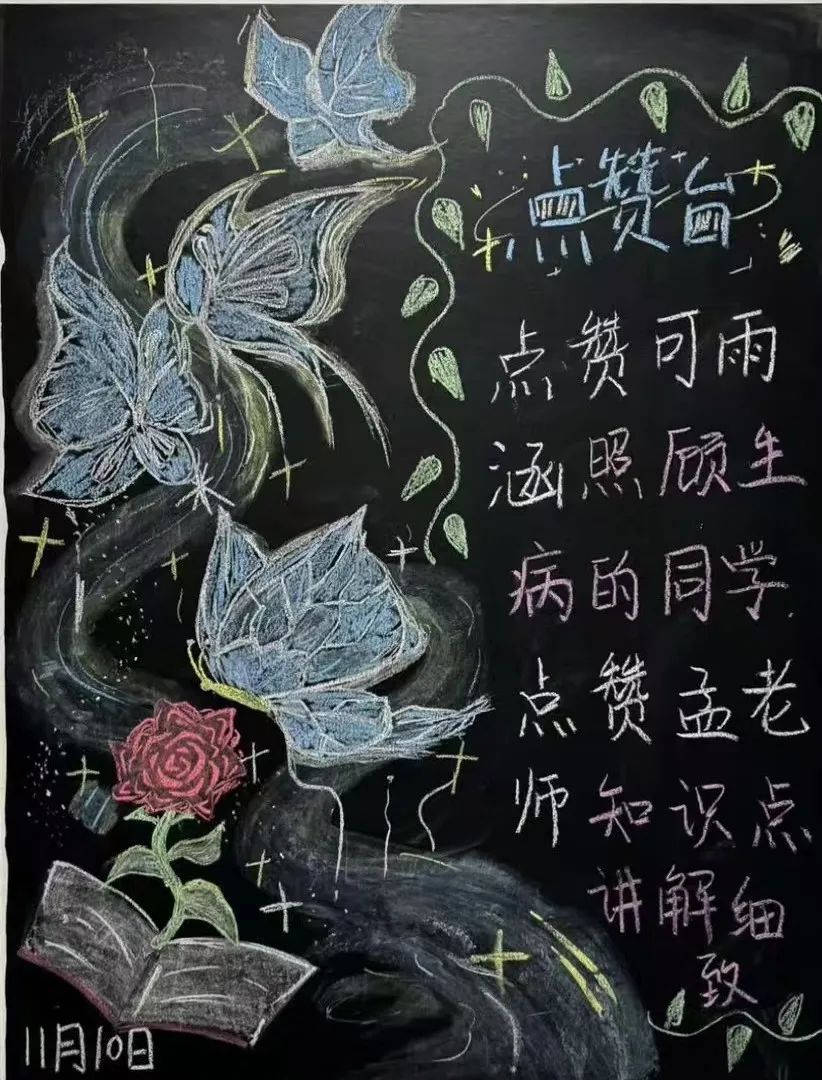 点赞台
点赞可雨
涵照顾生
病的同学
点赞孟老
师知识点
讲解细
致
11月10日